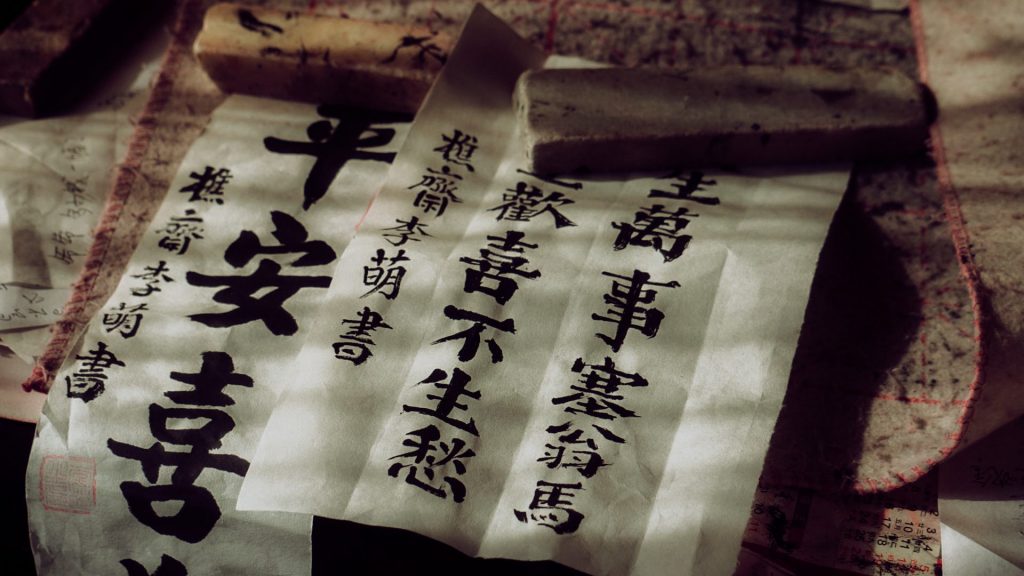 生萬事塞翁馬
歡喜不生愁
樵齋李萌書
平安喜
樵齋李萌書